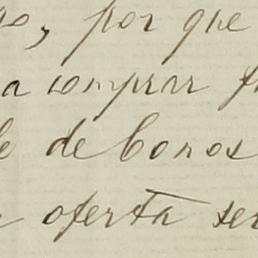 os, por que
a comprar
de bonos
oferta se